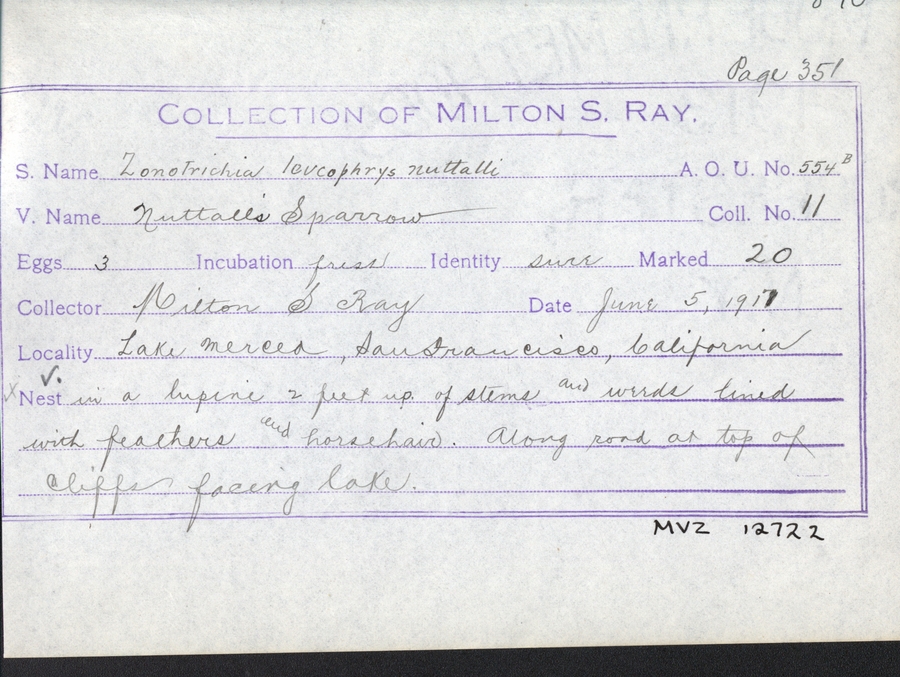 Page 351
COLLECTION OF MILTON S. RAY.
S. Name Zonotrichia leucophrys nuttalli A. O. U. No. 554 B
V. Name Nuttall's Sparrow Coll. No. 11
Eggs 3 Incubation fresh Identity sure Marked 20
Collector Milton S Ray Date June 5, 1917
Locality Lake Merced, San Francisco, California
Nest in a lupine 2 feet up. of stems and weeds lined
with feathers and horsehair. Along road at top of
cliffs facing lake.
MVZ 12722